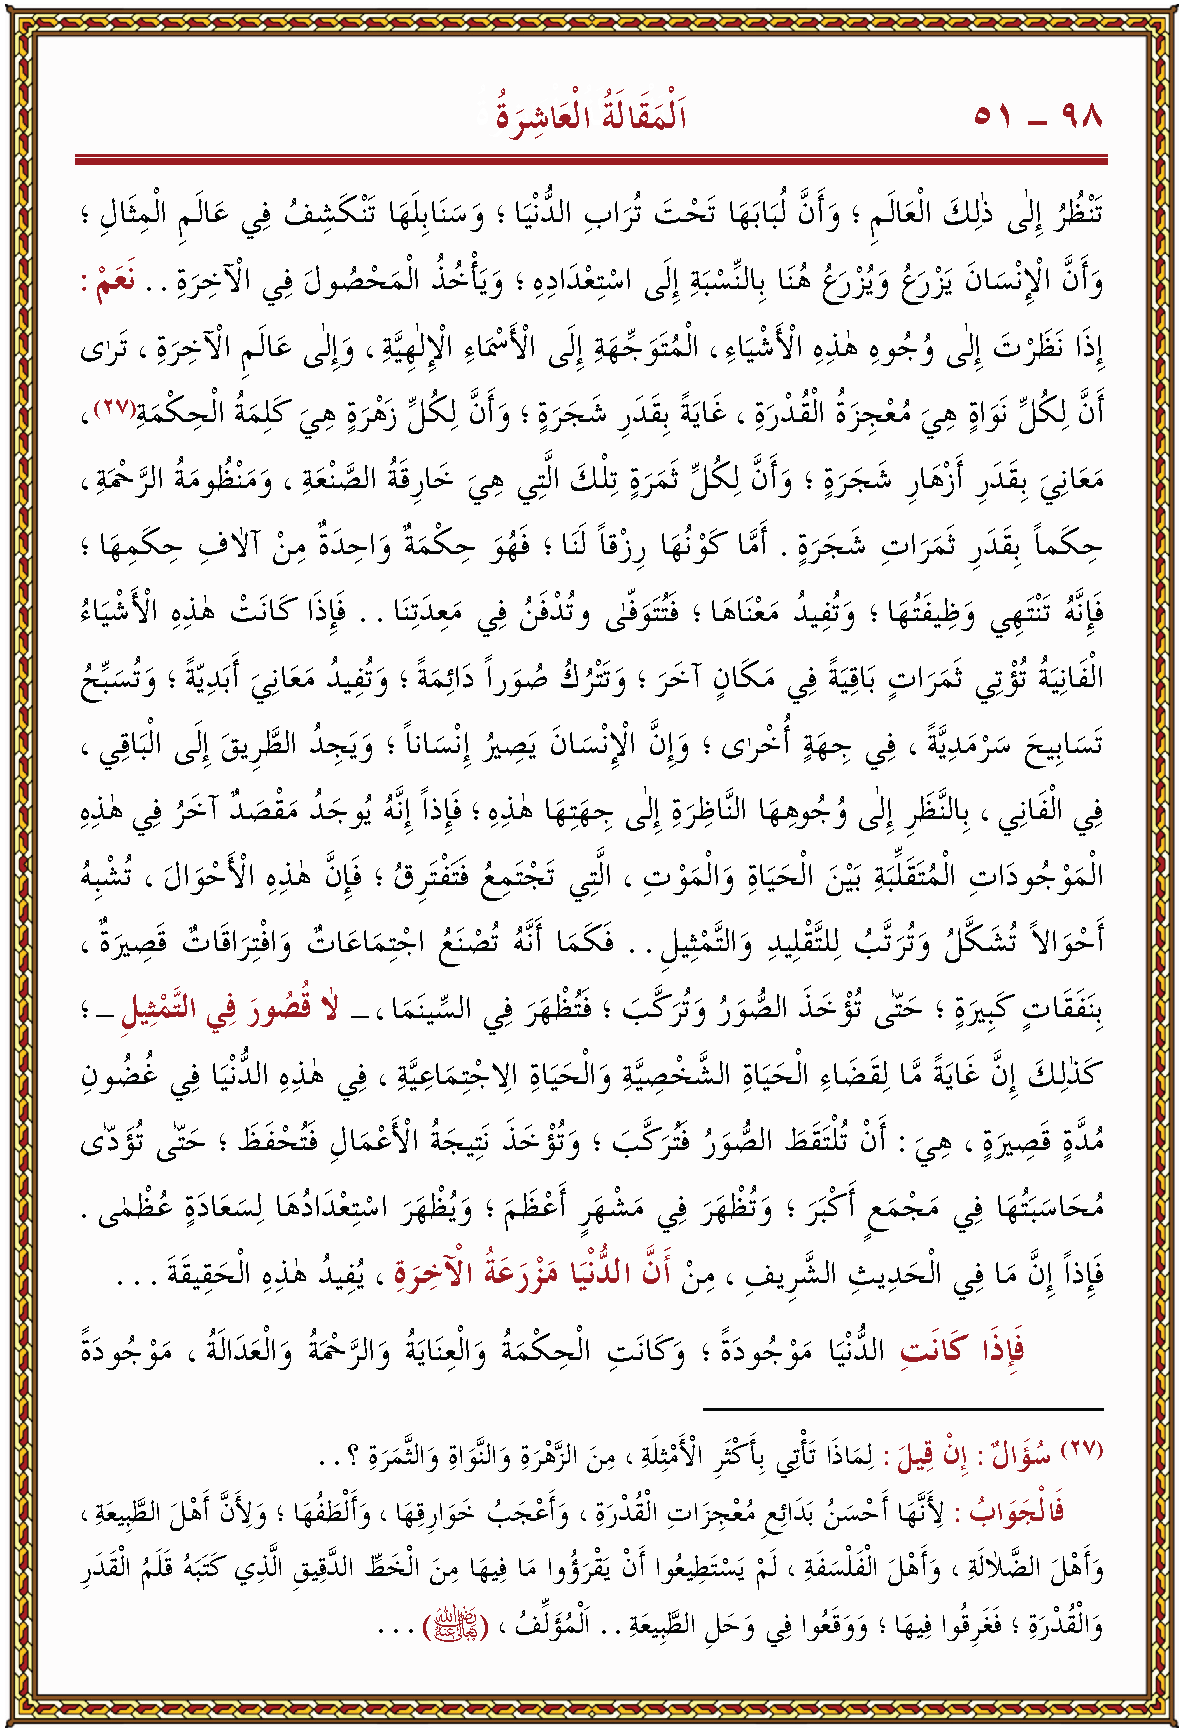 ٩٨ – ٥١ اَلْمَقَالَةُ الْعَاشِرَةُ
تَنْظُرُ إِلٰى ذٰلِكَ الْعَالَمِ ؛ وَأَنَّ لُبَابَهَا تَحْتَ تُرَابِ الدُّنْيَا ؛ وَسَنَابِلَهَا تَنْكَشِفُ فِي عَالَمِ الْمِثَالِ ؛
وَأَنَّ الْإِنْسَانَ يَزْرَعُ وَيُزْرَعُ هُنَا بِالنِّسْبَةِ إِلَى اسْتِعْدَادِهِ ؛ وَيَأْخُذُ الْمَحْصُولَ فِي الْآخِرَةِ . . نَعَمْ :
إِذَا نَظَرْتَ إِلٰى وُجُوهِ هٰذِهِ الْأَشْيَاءِ ، الْمُتَوَجِّهَةِ إِلَى الْأَسْمَاءِ الْإِلٰهِيَّةِ ، وَإِلٰى عَالَمِ الْآخِرَةِ ، تَرٰى
أَنَّ لِكُلِّ نَوَاةٍ هِيَ مُعْجِزَةُ الْقُدْرَةِ ، غَايَةً بِقَدَرِ شَجَرَةٍ ؛ وَأَنَّ لِكُلِّ زَهْرَةٍ هِيَ كَلِمَةُ الْحِكْمَةِ(٢٧)،
مَعَانِيَ بِقَدَرِ أَزْهَارِ شَجَرَةٍ ؛ وَأَنَّ لِكُلِّ ثَمَرَةٍ تِلْكَ الَّتِي هِيَ خَارِقَةُ الصَّنْعَةِ ، وَمَنْظُومَةُ الرَّحْمَةِ ،
حِكَماً بِقَدَرِ ثَمَرَاتِ شَجَرَةٍ . أَمَّا كَوْنُهَا رِزْقاً لَنَا ؛ فَهُوَ حِكْمَةٌ وَاحِدَةٌ مِنْ آلَافِ حِكَمِهَا ؛
فَإِنَّهُ تَنْتَهِي وَظِيفَتُهَا ؛ وَتُفِيدُ مَعْنَاهَا ؛ فَتُتَوَفّٰى وتُدْفَنُ فِي مَعِدَتِنَا . . فَإِذَا كَانَتْ هٰذِهِ الْأَشْيَاءُ
الْفَانِيَةُ تُؤْتِي ثَمَرَاتٍ بَاقِيَةً فِي مَكَانٍ آخَرَ ؛ وَتَتْرُكُ صُوَراً دَائِمَةً ؛ وَتُفِيدُ مَعَانِيَ أَبَدِيّةً ؛ وَتُسَبِّحُ
تَسَابِيحَ سَرْمَدِيَّةً ، فِي جِهَةٍ أُخْرٰى ؛ وَإِنَّ الْإِنْسَانَ يَصِيرُ إِنْسَاناً ؛ وَيَجِدُ الطَّرِيقَ إِلَى الْبَاقِي ،
فِي الْفَانِي ، بِالنَّظَرِ إِلٰى وُجُوهِهَا النَّاظِرَةِ إِلٰى جِهَتِهَا هٰذِهِ ؛ فَإِذاً إِنَّهُ يُوجَدُ مَقْصَدٌ آخَرُ فِي هٰذِهِ
الْمَوْجُودَاتِ الْمُتَقَلِّبَةِ بَيْنَ الْحَيَاةِ وَالْمَوْتِ ، الَّتِي تَجْتَمِعُ فَتَفْتَرِقُ ؛ فَإِنَّ هٰذِهِ الْأَحْوَالَ ، تُشْبِهُ
أَحْوَالاً تُشَكَّلُ وَتُرَتَّبُ لِلتَّقْلِيدِ وَالتَّمْثِيلِ . . فَكَمَا أَنَّهُ تُصْنَعُ اجْتِمَاعَاتٌ وَافْتِرَاقَاتٌ قَصِيرَةٌ ،
بِنَفَقَاتٍ كَبِيرَةٍ ؛ حَتّٰى تُؤْخَذَ الصُّوَرُ وَتُرَكَّبَ ؛ فَتُظْهَرَ فِي السِّينَمَا ، – لَا قُصُورَ فِي التَّمْثِيلِ – ؛
كَذٰلِكَ إِنَّ غَايَةً مَّا لِقَضَاءِ الْحَيَاةِ الشَّخْصِيَّةِ وَالْحَيَاةِ الِاجْتِمَاعِيَّةِ ، فِي هٰذِهِ الدُّنْيَا فِي غُضُونِ
مُدَّةٍ قَصِيرَةٍ ، هِيَ : أَنْ تُلْتَقَطَ الصُّوَرُ فَتُرَكَّبَ ؛ وَتُؤْخَذَ نَتِيجَةُ الْأَعْمَالِ فَتُحْفَظَ ؛ حَتّٰى تُؤَدّٰى
مُحَاسَبَتُهَا فِي مَجْمَعٍ أَكْبَرَ ؛ وَتُظْهَرَ فِي مَشْهَرٍ أَعْظَمَ ؛ وَيُظْهَرَ اسْتِعْدَادُهَا لِسَعَادَةٍ عُظْمٰى .
فَإِذاً إِنَّ مَا فِي الْحَدِيثِ الشَّرِيفِ ، مِنْ أَنَّ الدُّنْيَا مَزْرَعَةُ الْآخِرَةِ ، يُفِيدُ هٰذِهِ الْحَقِيقَةَ . . .
فَإِذَا كَانَتِ الدُّنْيَا مَوْجُودَةً ؛ وَكَانَتِ الْحِكْمَةُ وَالْعِنَايَةُ وَالرَّحْمَةُ وَالْعَدَالَةُ ، مَوْجُودَةً
(٢٧) سُؤَالٌ : إِنْ قِيلَ : لِمَاذَا تَأْتِي بِأَكْثَرِ الْأَمْثِلَةِ ، مِنَ الزَّهْرَةِ وَالنَّوَاةِ وَالثَّمَرَةِ ؟ . .
فَالْجَوَابُ : لِأَنَّهَا أَحْسَنُ بَدَائِعِ مُعْجِزَاتِ الْقُدْرَةِ ، وَأَعْجَبُ خَوَارِقِهَا ، وَأَلْطَفُهَا ؛ وَلِأَنَّ أَهْلَ الطَّبِيعَةِ ،
وَأَهْلَ الضَّلَالَةِ ، وَأَهْلَ الْفَلْسَفَةِ ، لَمْ يَسْتَطِيعُوا أَنْ يَقْرَؤُوا مَا فِيهَا مِنَ الْخَطِّ الدَّقِيقِ الَّذِي كَتَبَهُ قَلَمُ الْقَدَرِ
وَالْقُدْرَةِ ؛ فَغَرِقُوا فِيهَا ؛ وَوَقَعُوا فِي وَحَلِ الطَّبِيعَةِ . . اَلْمُؤَلِّفُ ، (رَضِيَ اللهُ تَعَالٰى عَنْهُ) . . .